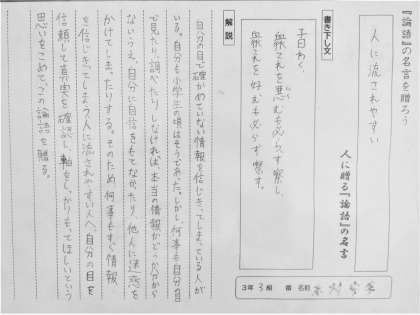 『論語』の名言を贈ろう
人に流されやすい
人に贈る『論語』の名言
書き下し文
子曰わく、
衆之を悪むも必らず察し、
衆之を好むも必らず察す。
解説
自分の目で確かめていない情報を信じきってしまっている人が
いる。自分も小学生の頃はそうであった。しかし、何事も自分の目
で見たり調べたりしなければ本当の情報かどうか分から
ないうえ、自分に自信をもてなかったり、他人に迷惑を
かけてしまったりする。そのため何事もすぐ情報
を信じきってしまう人に流されやすい人へ、自分の目を
信頼して真実を確認し、軸をしっかりもってほしいという
思いをこめて、この論語を贈る。
3年 3組 番 名前